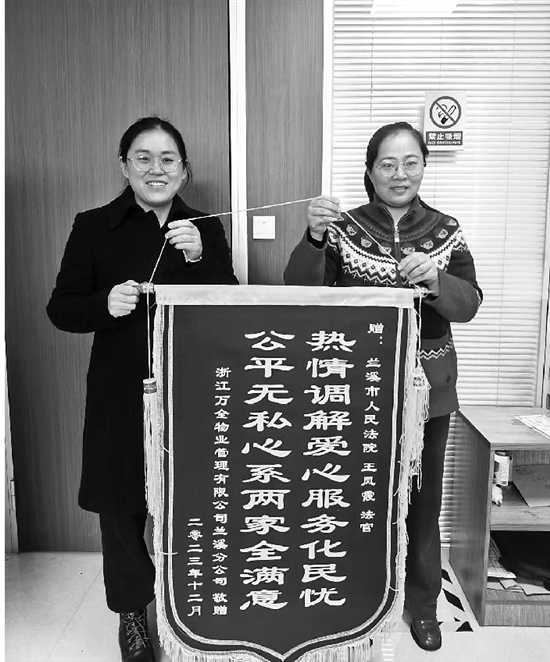 禁止吸烟
NO SMOKING
赠：兰溪市人民法院 王凤霞 法官
热情调解爱心服务化民忧
公平无私心系两家全满意
浙江万全物业管理有限公司兰溪分公司 敬赠
二零二三年十二月